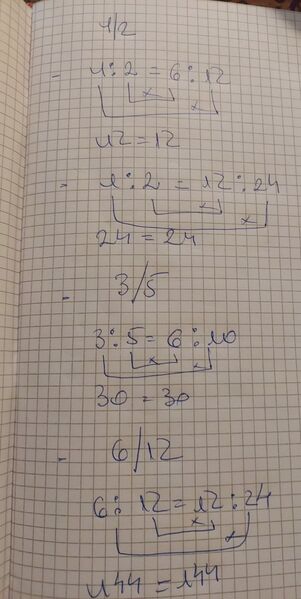 1/2
- 1:2 = 6:12
x x
12 = 12
- 1:2 = 12:24
x x
24 = 24
- 3/5
3:5 = 6:10
x x
30 = 30
- 6/12
6:12 = 12:24
x x
144 = 144